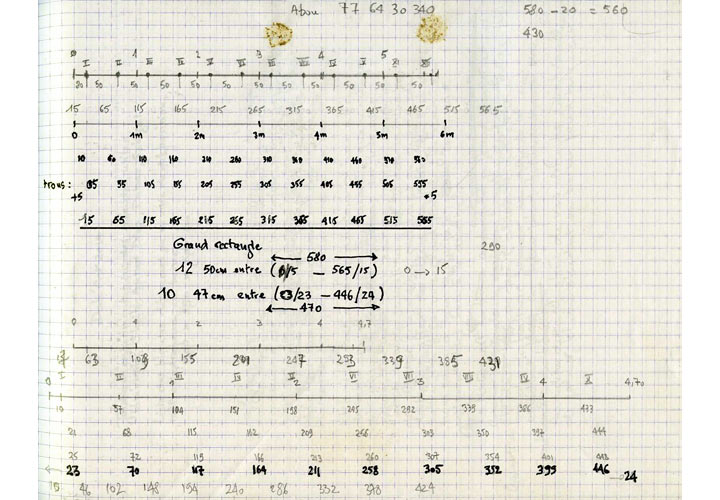 77 64 30 340
580 - 20 = 560
430
0 1 2 3 4 5
I II III IV V VI VII VIII IX X XI XII
20 50 50 50 50 50 50 50 50 50 50 50
15 65 115 165 215 265 315 365 415 465 515 565
0 1m 2m 3m 4m 5m 6m
10 60 110 160 210 260 310 360 410 460 510 560
trous : 05 55 105 155 205 255 305 355 405 455 505 555
+5 +5
15 65 115 165 215 265 315 365 415 465 515 565
Grand rectangle
290
580
12 50cm entre ( /15 - 565/15) 0 → 15
10 47cm entre ( /23 - 446/24)
470
0 1 2 3 4 4,7
63 109 155 201 247 293 339 385 431
0 I II 1 III IV 2 V VI VII 3 VIII IX 4 X 4,70
10 57 104 151 198 245 292 339 386 433
21 68 115 162 209 256 303 350 397 444
25 72 119 166 213 260 307 354 401 448
23 70 117 164 211 258 305 352 399 446 → 24
46 102 148 194 240 286 332 378 424